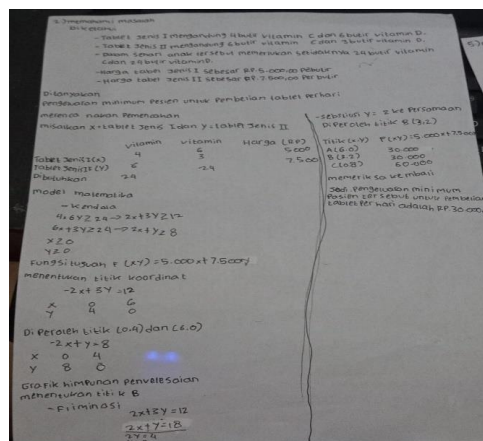 1.) memahami masalah
Diketahui
- Tablet Jenis I mengandung 4 butir vitamin C dan 6 butir vitamin D.
- Tablet Jenis II mengandung 6 butir vitamin C dan 3 butir vitamin D.
- Dalam sehari anak tersebut memerlukan setidaknya 24 butir vitamin
C dan 24 butir vitamin D.
- Harga tablet Jenis I sebesar RP. 5.000.00 Perbutir
- Harga tablet Jenis II sebesar RP. 7.500.00 Per butir
Ditanyakan
Pengeluaran minimum Pasien untuk Pembelian tablet Perhari
merencanakan Pemecahan
misalkan x = tablet Jenis I dan y = tablet Jenis II
vitamin vitamin Harga (RP)
Tablet Jenis I (x) 4 6 5000
Tablet Jenis II (y) 6 3 7.500
Dibutuhkan 24 24
model matematika
- Kendala
4x 6y ≥ 24 -> 2x + 3y ≥ 12
6x + 3y ≥ 24 -> 2x + y ≥ 8
x ≥ 0
y ≥ 0
Fungsi tujuan F (x,y) = 5.000x + 7.500y
menentukan titik koordinat
- 2x + 3y = 12
x 0 6
y 4 0
Diperoleh titik (0.4) dan (6.0)
- 2x + y = 8
x 0 4
y 8 0
Grafik himpunan penyelesaian
menentukan titik B
- Eliminasi
2x + 3y = 12
2x + y = 18
2y = 4
- sebstitusi y = 2 ke Persamaan
Diperoleh titik B (3.2)
Titik (x,y) F(x,y) = 5.000x + 7.500
A (6.0) 30.000
B (3.2) 30.000
C (0.8) 60.000
memeriksa kembali
Jadi Pengeluaran minimum
Pasien tersebut untuk Pembelian
tablet Per hari adalah RP. 30.000